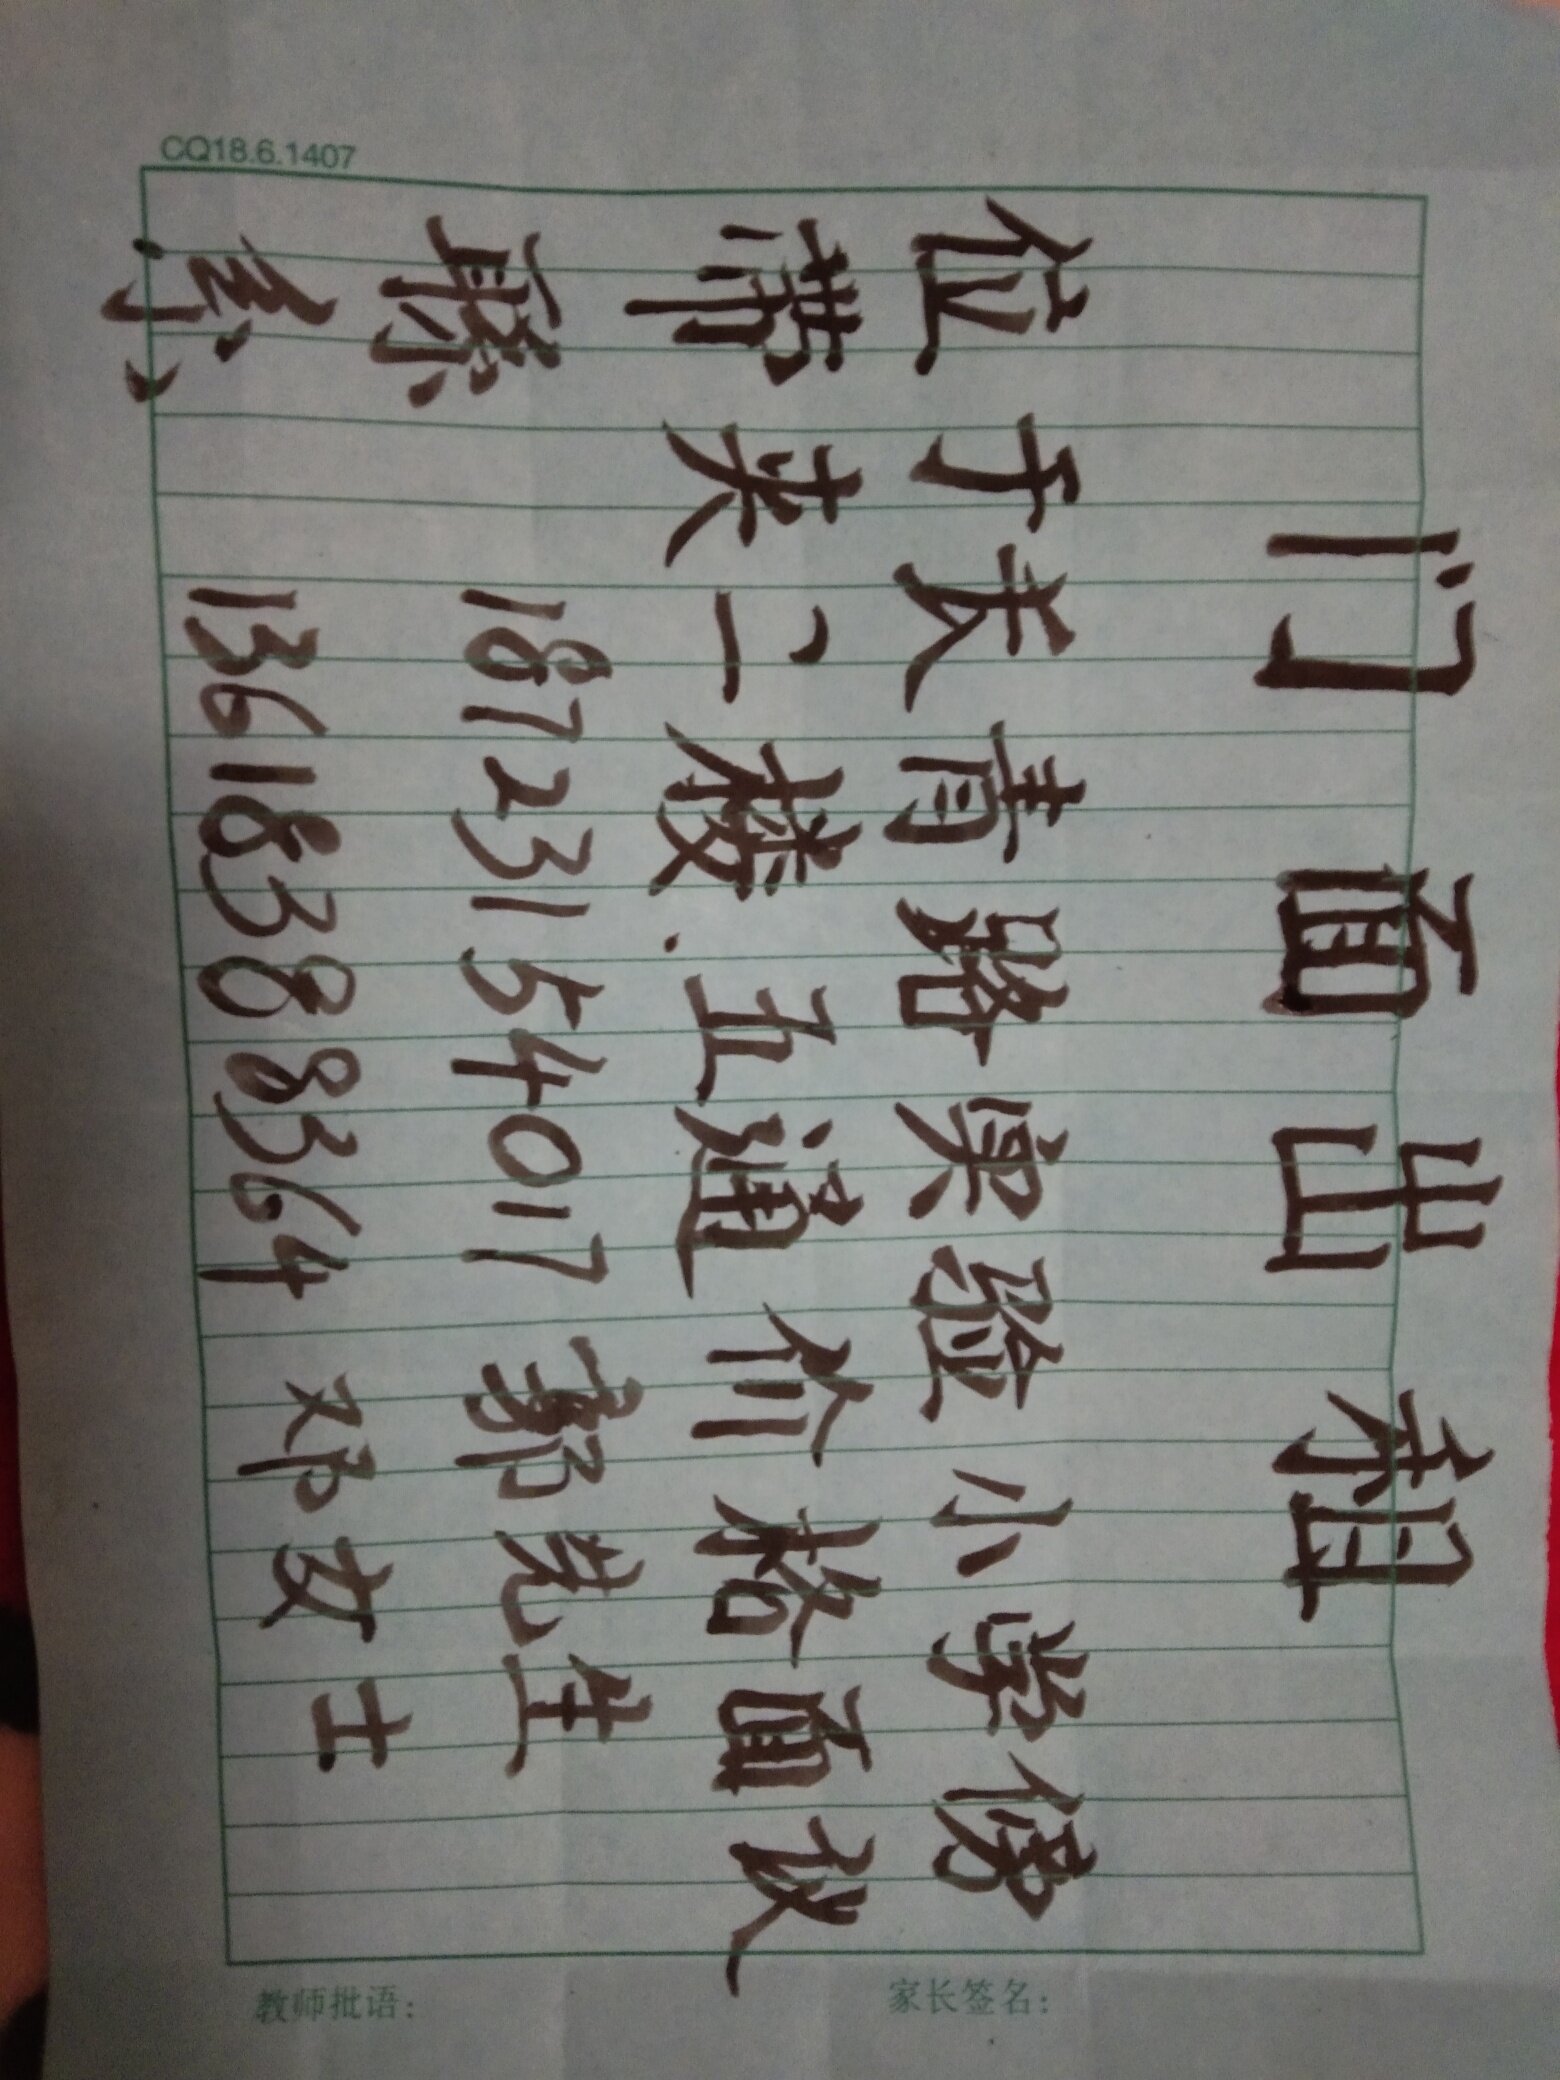 门面出租
位于长青路实验小学傍
带夹二楼.五通价格面议
联 18723154017 郭先生
系: 13618388364 邓女士
CQ18.6.1407
家长签名:
教师批语: